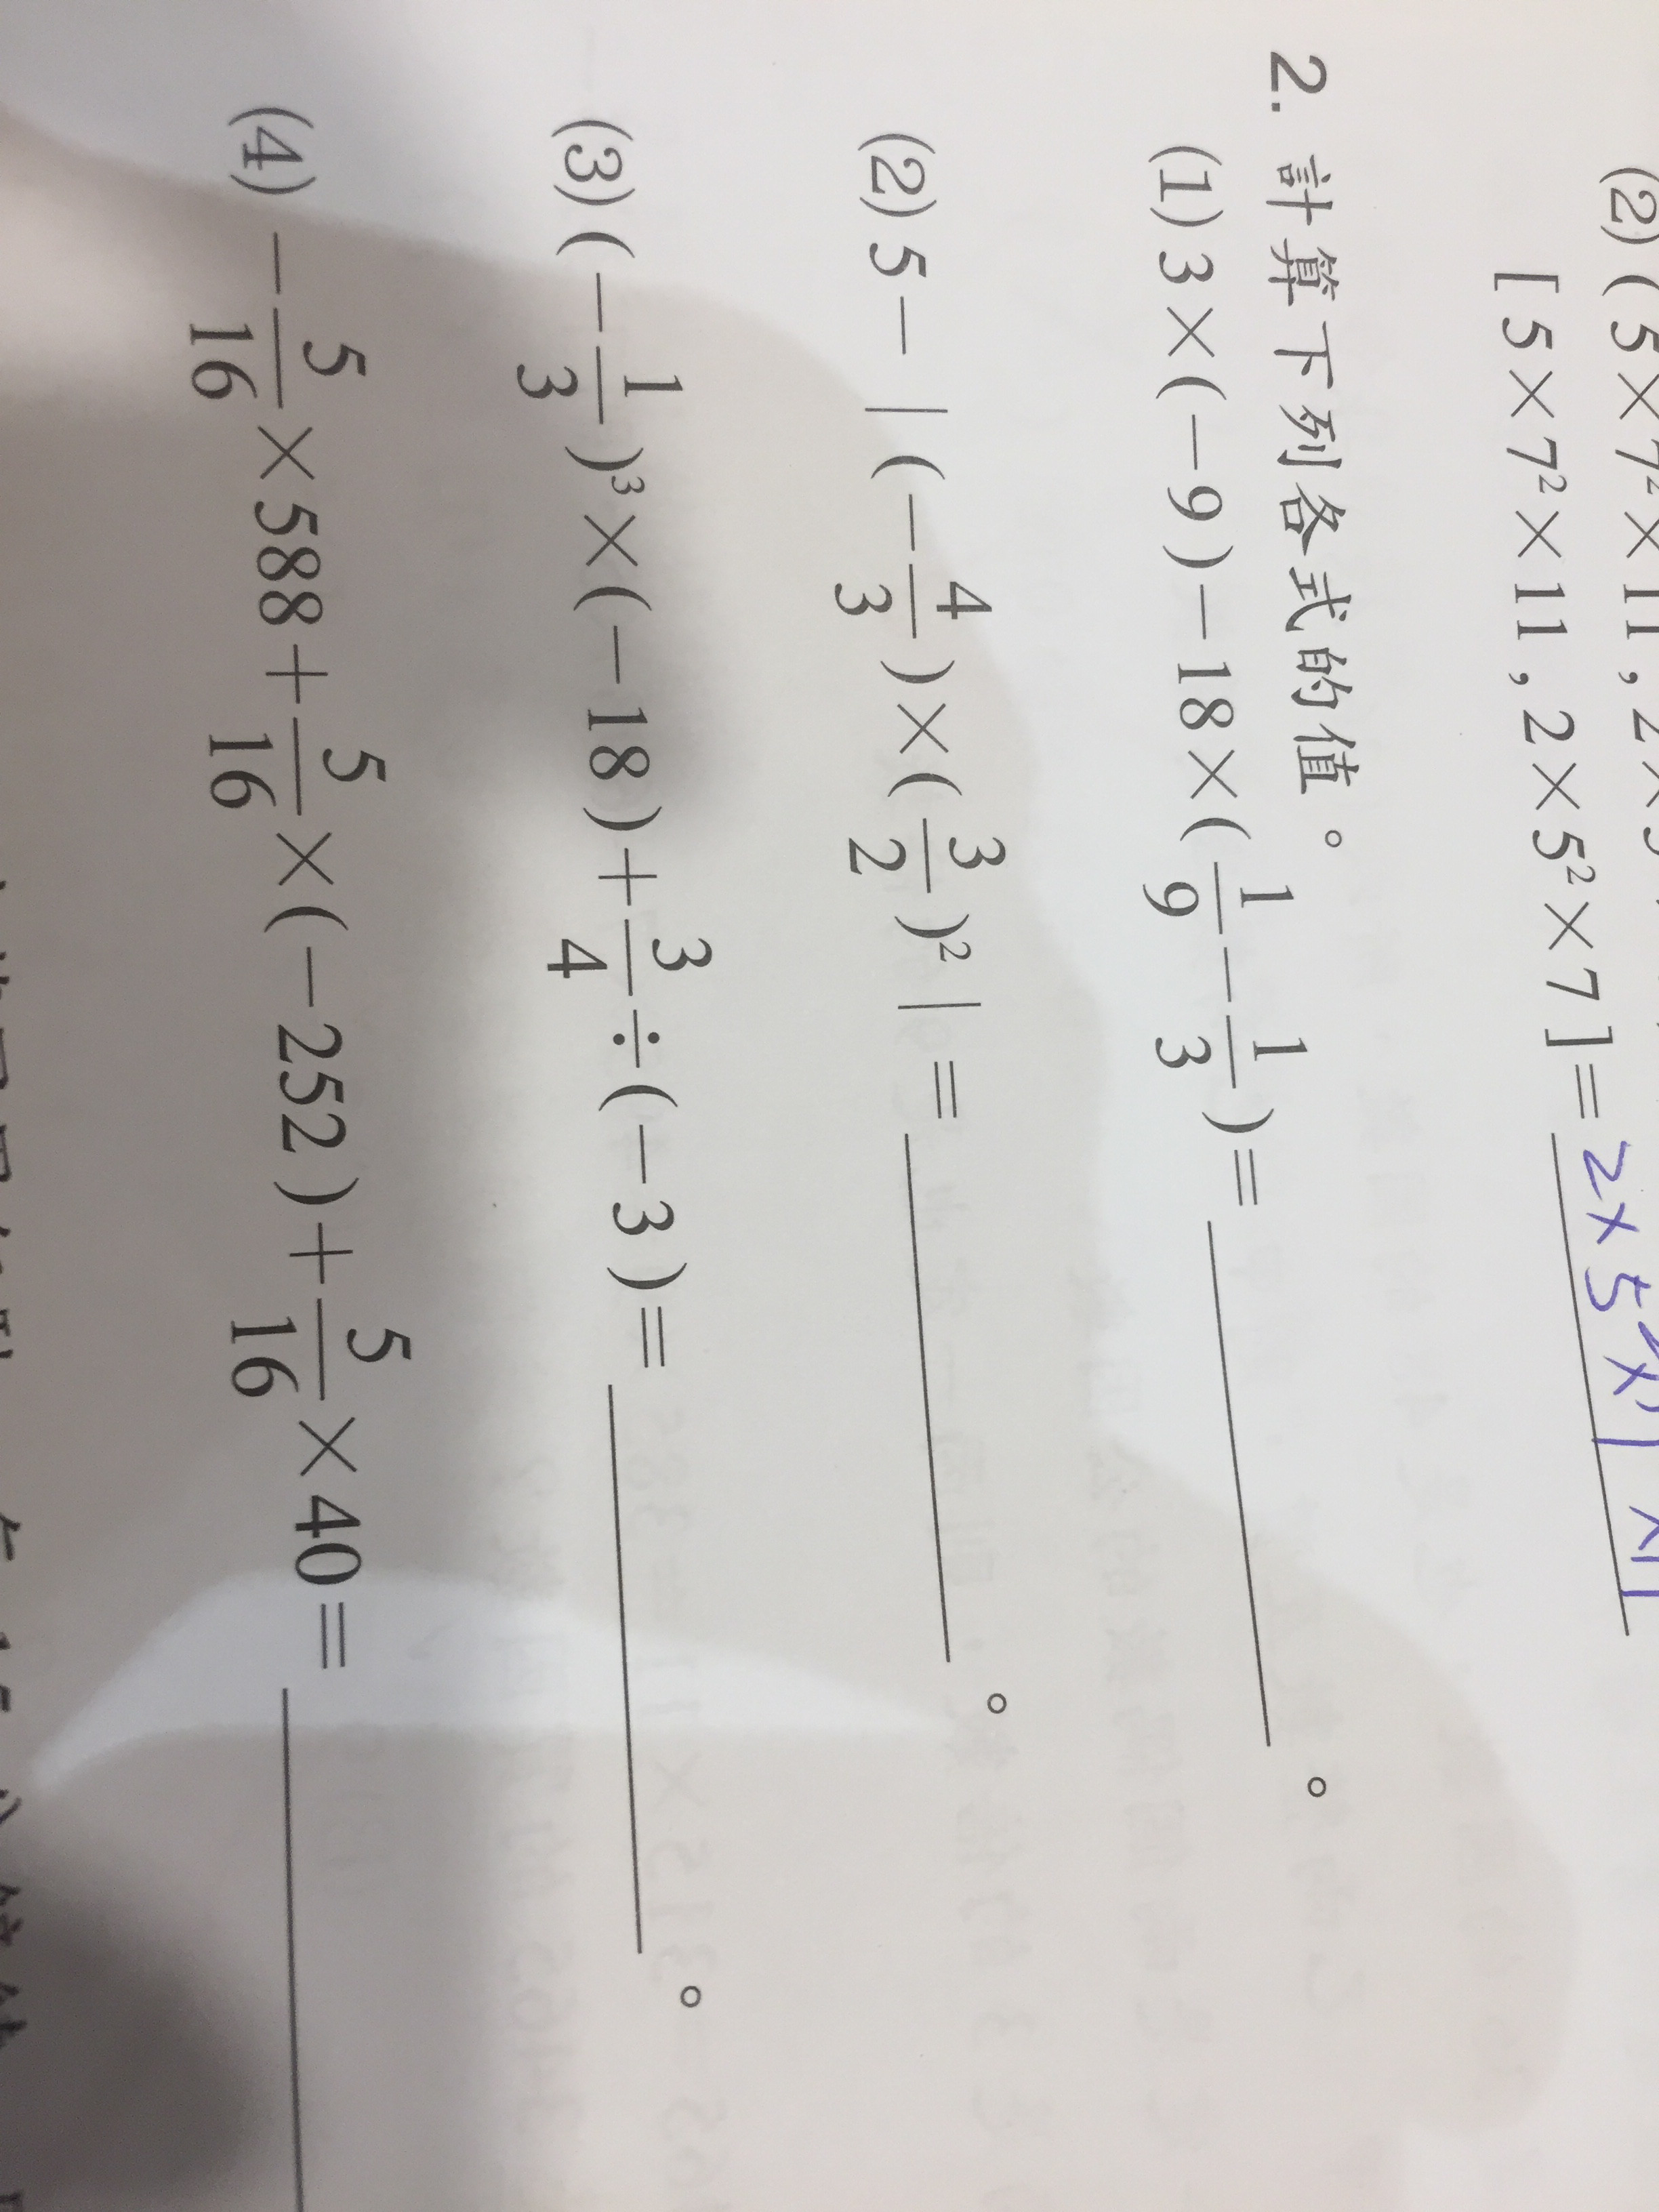 (2) ( 5×7²×11 , 2×5
[ 5×7²×11 , 2×5²×7 ]= 2×5²×7
2. 計算下列各式的值。
(1) 3×(−9)−18×(1/9−1/3)=＿＿＿＿。
(2) 5−|(−4/3)×(3/2)²|=＿＿＿＿。
(3) (−1/3)³×(−18)+3/4÷(−3)=＿＿＿＿。
(4) −5/16×588+5/16×(−252)+5/16×40=＿＿＿＿